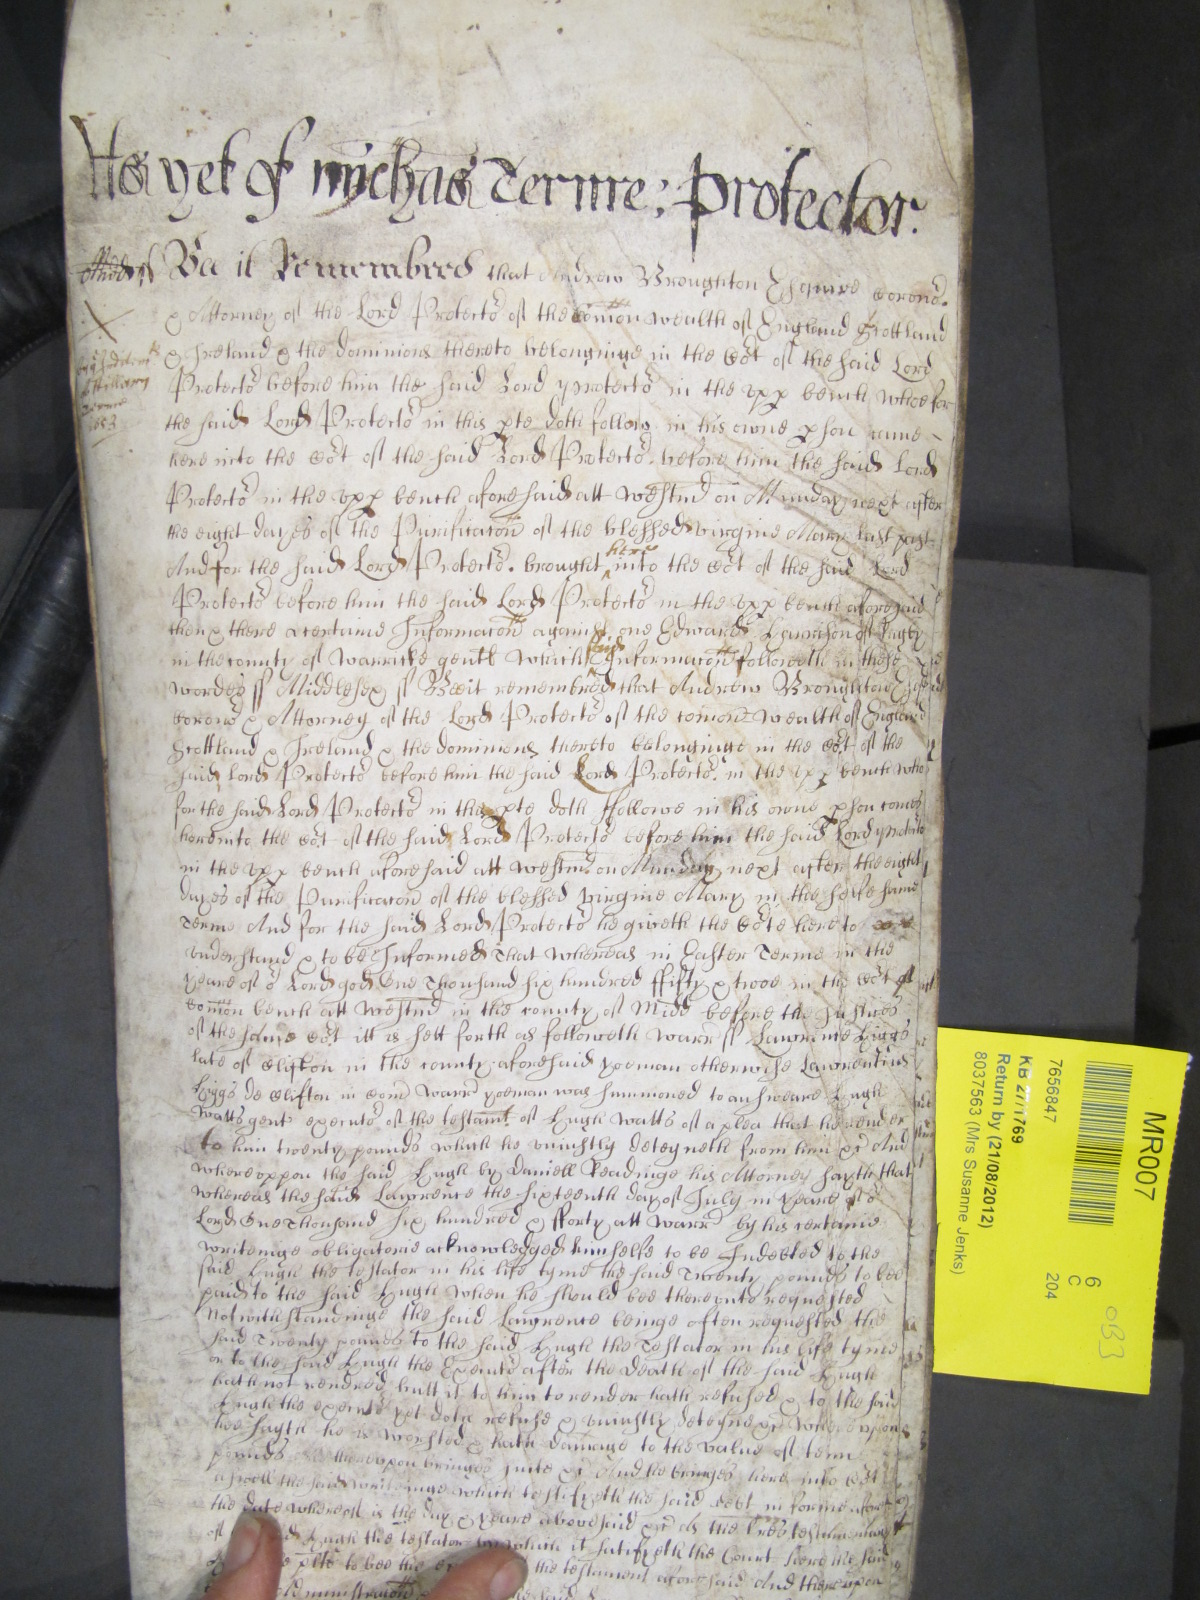 As yet of Michas Terme: Protector.
Midds ss Bee it Remembred that Andrew Broughton Esquire Corono.r
& Attorney of the Lord Protecto.r of the Comon wealth of England Scottland
& Ireland & the dominions thereto belonginge in the Co.rt of the said Lord
Protecto.r before him the said Lord Protecto.r in the upp bench whoe for
the said Lord Protecto.r in this pte doth follow in his owne pson came
here into the Co.rt of the said Lord Protecto.r before him the said Lord
Protecto.r in the upp bench aforesaid att Westm.r on Munday next after
the eight dayes of the Purificacon of the blessed virgine Mary last past
And for the said Lord Protecto.r brought here into the Co.rt of the said Lord
Protecto.r before him the said Lord Protecto.r in the upp bench aforesaid
then & there a certaine Informacon against one Edward of Rugby
in the county of Warricke gentl which said Informacon followeth in these
wordes ss Middlesex ss Bee it remembred that Andrew Broughton
Corono.r & Attorney of the Lord Protecto.r of the comon wealth of England
Scottland & Ireland & the dominions thereto belonginge in the Co.rt of the
said Lord Protecto.r before him the said Lord Protecto.r in the upp bench who
for the said Lord Protecto.r in this pte doth ffollowe in his owne pson comes
here into the Co.rt of the said Lord Protecto.r before him the said Lord Protecto.r
in the upp bench aforesaid att Westm.r on Munday next after the eight
dayes of the Purificacon of the blessed virgine Mary in the selfe same
Terme And for the said Lord Protecto.r he giveth the Co.rte here to
understand & to be Informed That whereas in Easter Terme in the
yeare of o.r Lord god One Thousand six hundred ffifty & twoe in the Co.rt of
Comon bench att Westm.r in the county of Midd before the Justices
of the same Co.rt itt is sett forth as followeth Warr ss Lawrence Biggs
late of Clifton in the county aforesaid yeoman otherwise Lawrentius
Biggs de Clifton in Com Warr yeoman was summoned to answeare Hugh
Watts gent executo.r of the testam.t of Hugh Watts of a plea that he render
to him twenty pounds which he uniustly deteyneth from him &c And
whereuppon the said Hugh by Daniell Readinge his Attorney sayth that
whereas the said Lawrence the sixteenth day of July in yeare of o.r
Lord One Thousand six hundred & fforty att Warr by his certaine
writeinge obligatorie acknowledged himselfe to be Indebted to the
said Hugh the testator in his life tyme the said Twenty pounds to bee
paid to the said Hugh when he should bee thereunto requested
Notwithstandinge the said Lawrence beinge often requested the
said Twenty pounds to the said Hugh the Testator in his life tyme
or to the said Hugh the Executo.r after the death of the said Hugh
hath not rendred butt it to him to render hath refused & to the said
Hugh the executo.r yet doth refuse & uniustly deteyne &c Whereuppon
hee sayth he is worsted & hath damage to the value of tenn
pounds thereupon bringes suite &c And he bringes here into Co.rt
aswell the said writeinge which testifyeth the said debt in forme afores
the date whereof is the day & yeare abovesaid &c as the lres testamentary
of Hugh the testator by which it satisfyeth the Court here the said
plte to bee the the testament aforesaid And thereupon
MR007
6
C
204
7656847
KB 27/1769
Return by (21/08/2012)
8037563 (Mrs Susanne Jenks)